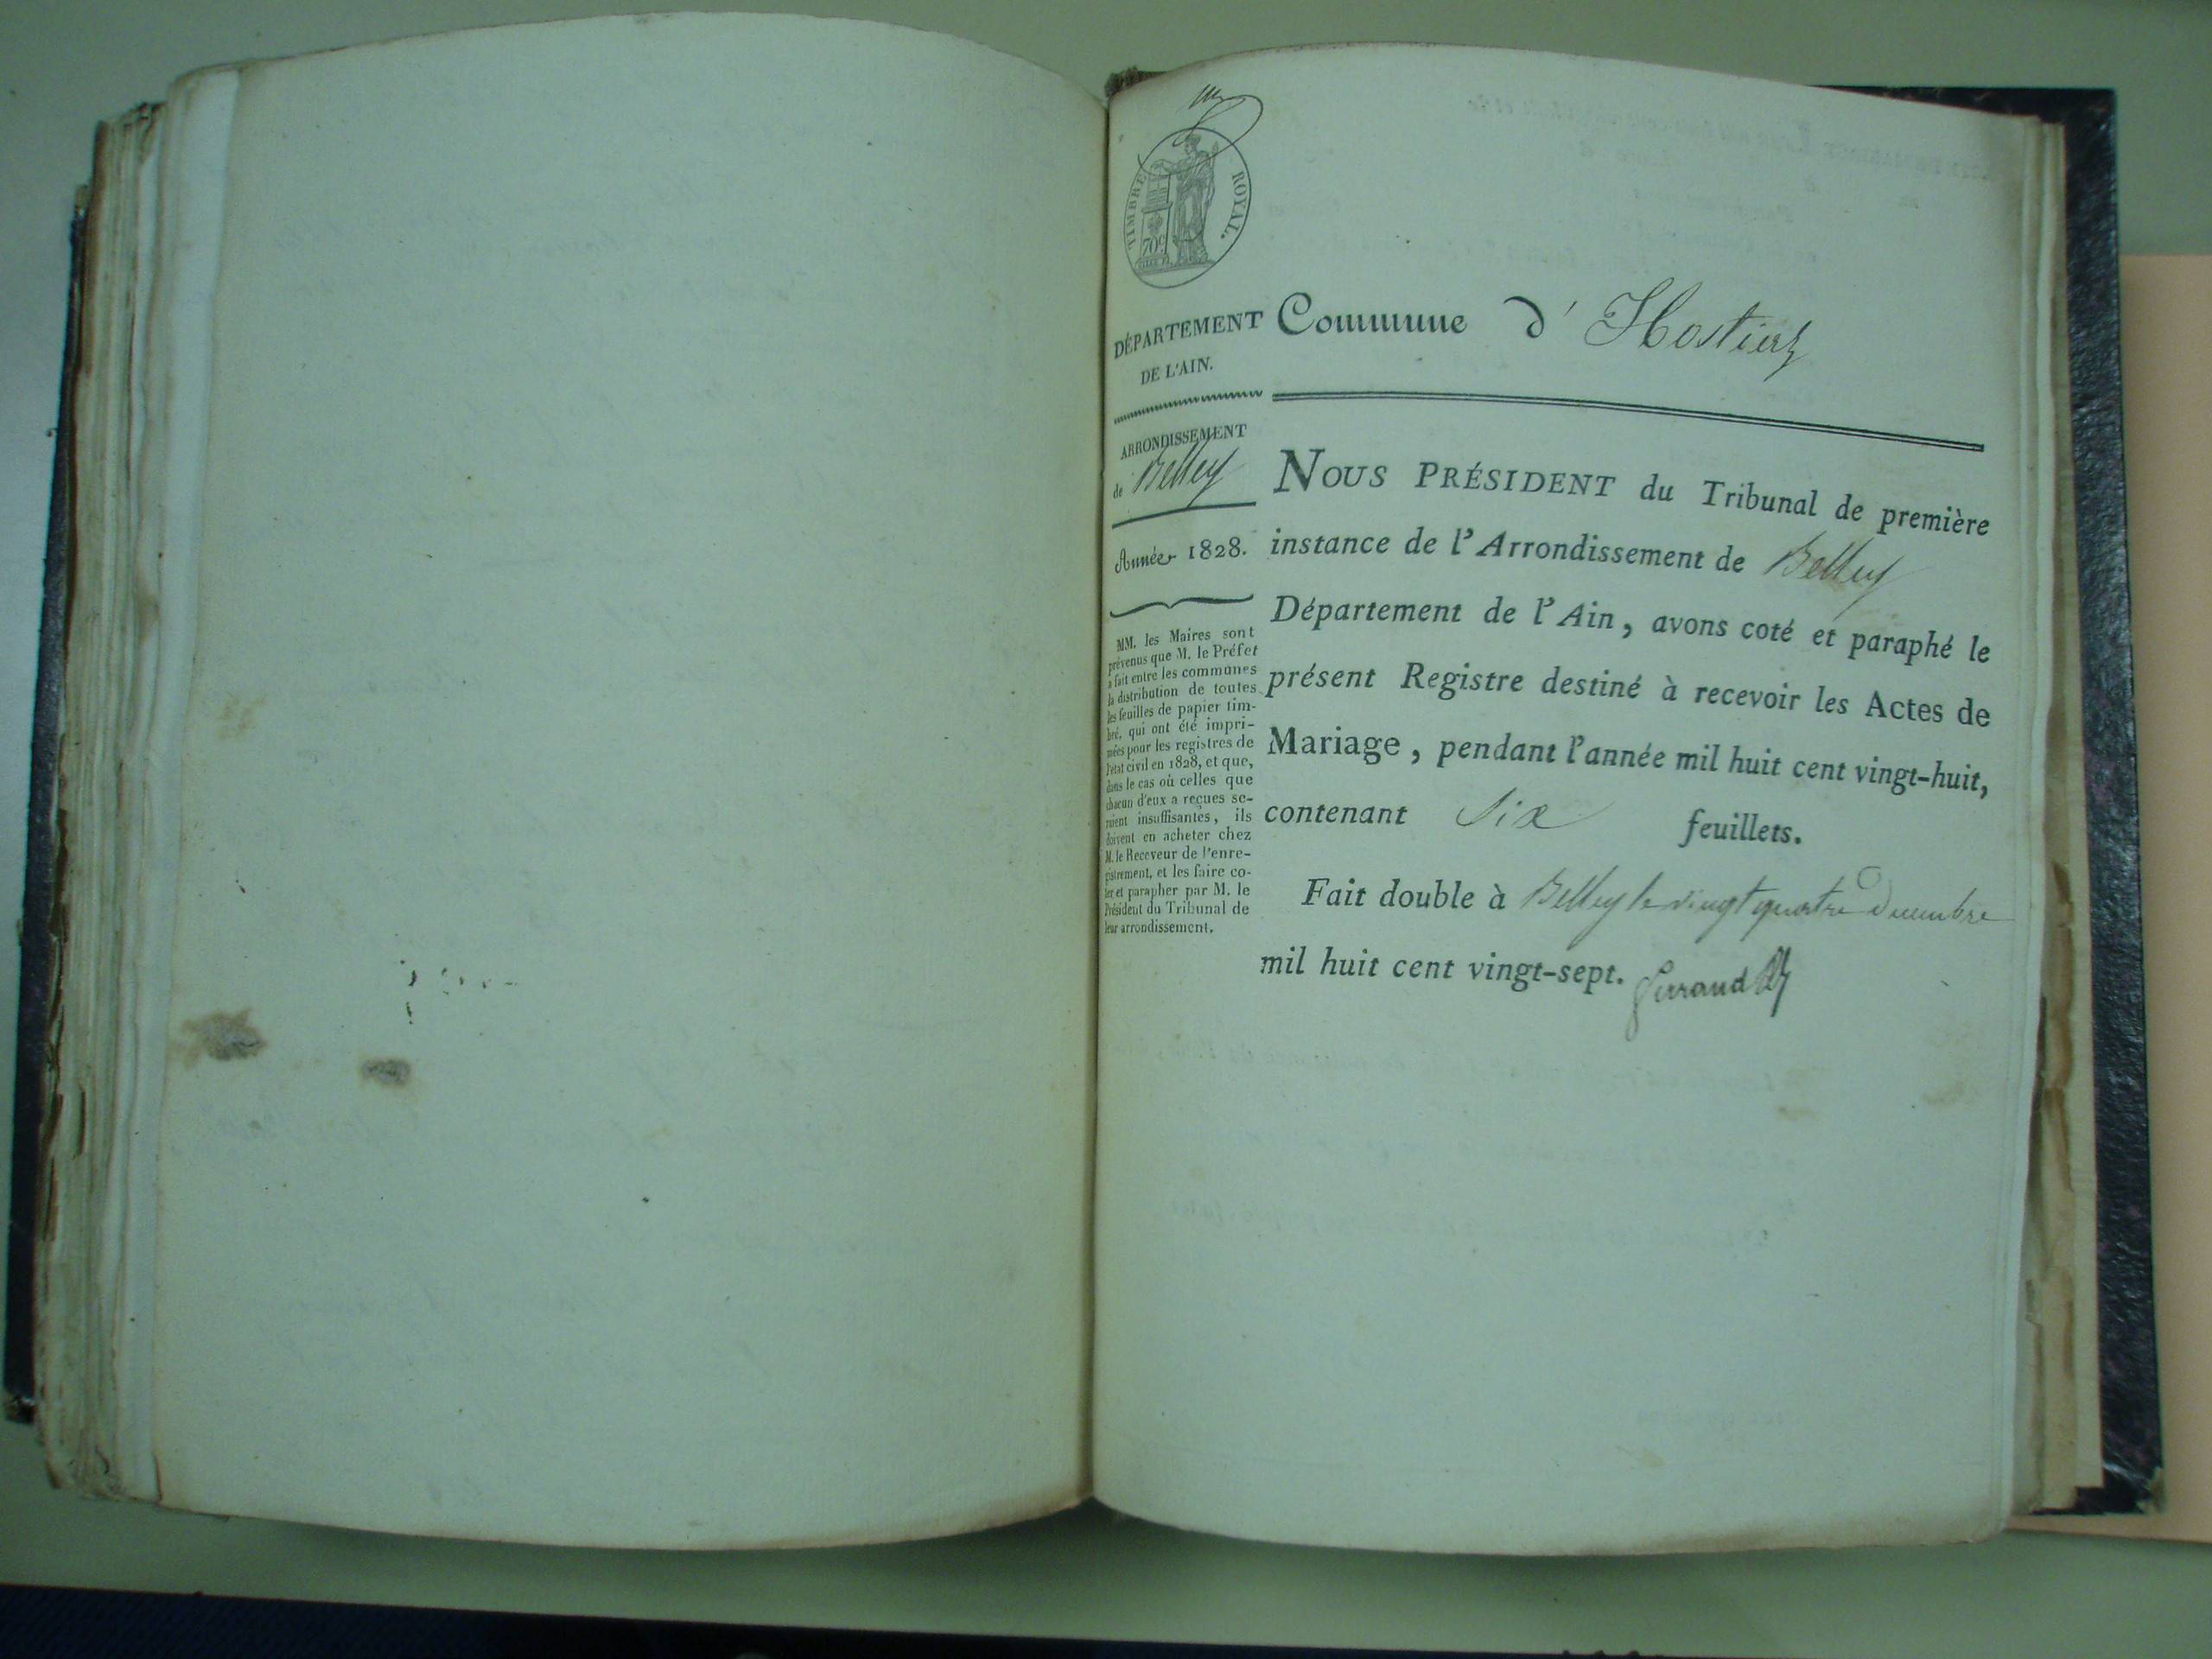 TIMBRE ROYAL.
70c
DÉPARTEMENT
DE L'AIN.
ARRONDISSEMENT
de Belley
Année 1828.
MM. les Maires sont
prévenus que M. le Préfet
a fait entre les communes
la distribution de toutes
les feuilles de papier tim-
bré, qui ont été impri-
mées pour les registres de
l'état civil en 1828, et que,
dans le cas où celles que
chacun d'eux a reçues se-
roient insuffisantes, ils
doivent en acheter chez
M. le Receveur de l'enre-
gistrement, et les faire co-
ter et parapher par M. le
Président du Tribunal de
leur arrondissement.
Commune d'Hostiaz
NOUS PRÉSIDENT du Tribunal de première
instance de l'Arrondissement de Belley
Département de l'Ain, avons coté et paraphé le
présent Registre destiné à recevoir les Actes de
Mariage, pendant l'année mil huit cent vingt-huit,
contenant Six feuillets.
Fait double à Belley le vingt quatre Decembre
mil huit cent vingt-sept.